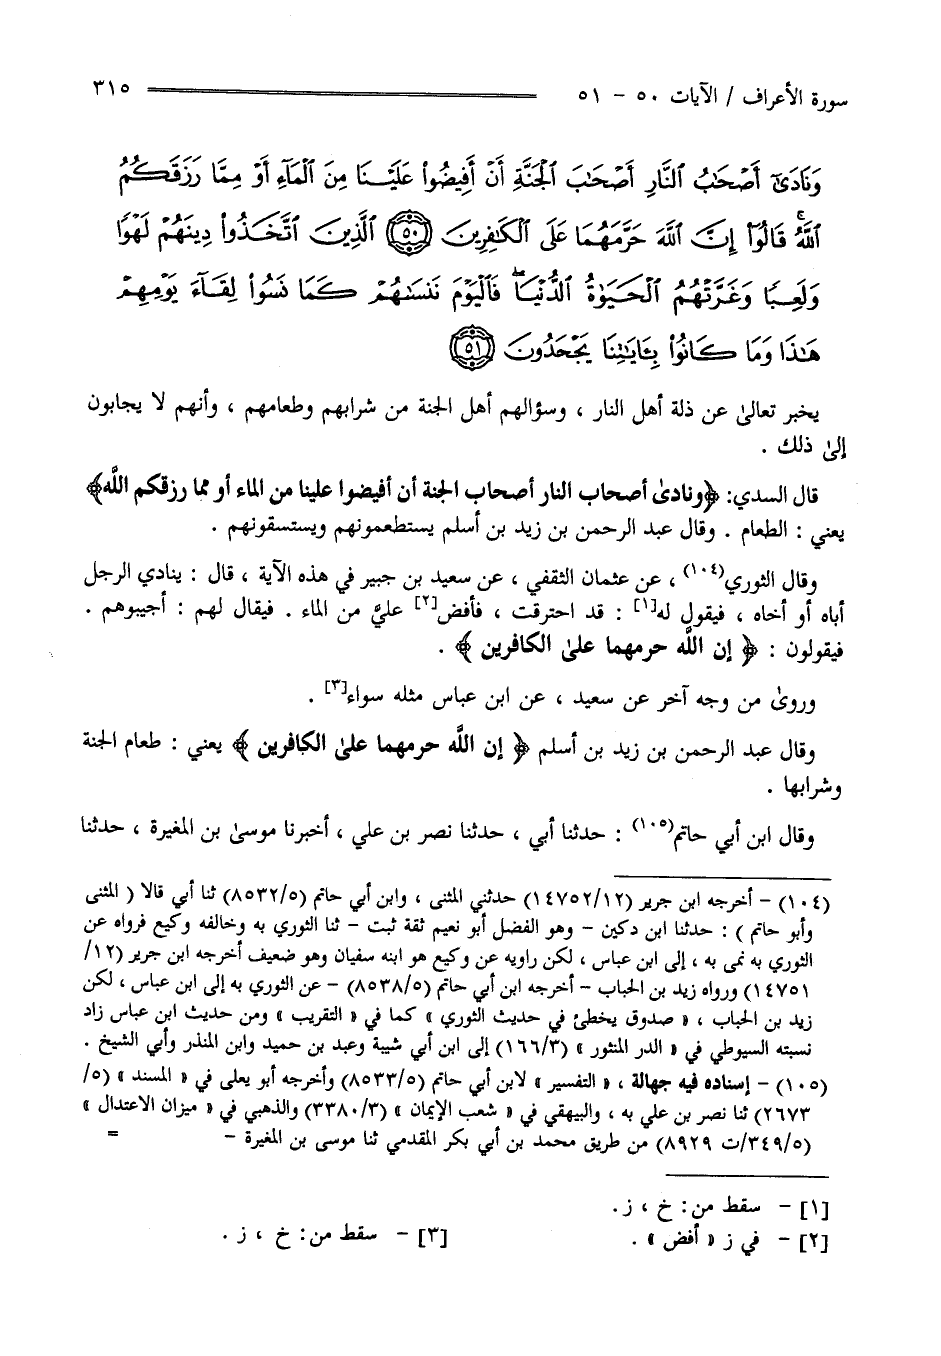 سورة الأعراف / الآيات ٥٠ - ٥١ ٣١٥
وَنَادَىٰٓ أَصْحَٰبُ ٱلنَّارِ أَصْحَٰبَ ٱلْجَنَّةِ أَنْ أَفِيضُوا۟ عَلَيْنَا مِنَ ٱلْمَآءِ أَوْ مِمَّا رَزَقَكُمُ
ٱللَّهُ ۚ قَالُوٓا۟ إِنَّ ٱللَّهَ حَرَّمَهُمَا عَلَى ٱلْكَٰفِرِينَ ۝٥٠ ٱلَّذِينَ ٱتَّخَذُوا۟ دِينَهُمْ لَهْوًا
وَلَعِبًا وَغَرَّتْهُمُ ٱلْحَيَوٰةُ ٱلدُّنْيَا ۖ فَٱلْيَوْمَ نَنسَىٰهُمْ كَمَا نَسُوا۟ لِقَآءَ يَوْمِهِمْ
هَٰذَا وَمَا كَانُوا۟ بِـَٔايَٰتِنَا يَجْحَدُونَ ۝٥١
يخبر تعالىٰ عن ذلة أهل النار ، وسؤالهم أهل الجنة من شرابهم وطعامهم ، وأنهم لا يجابون
إلىٰ ذلك .
قال السدي: ﴿ونادىٰ أصحاب النار أصحاب الجنة أن أفيضوا علينا من الماء أو مما رزقكم اللَّه﴾
يعني : الطعام . وقال عبد الرحمن بن زيد بن أسلم يستطعمونهم ويستسقونهم .
وقال الثوري(١٠٤) ، عن عثمان الثقفي ، عن سعيد بن جبير في هذه الآية ، قال : ينادي الرجل
أباه أو أخاه ، فيقول له[١] : قد احترقت ، فأفض[٢] عليَّ من الماء . فيقال لهم : أجيبوهم .
فيقولون : ﴿ إن اللَّه حرمهما علىٰ الكافرين ﴾ .
وروىٰ من وجه آخر عن سعيد ، عن ابن عباس مثله سواء[٣] .
وقال عبد الرحمن بن زيد بن أسلم ﴿ إن اللَّه حرمهما علىٰ الكافرين ﴾ يعني : طعام الجنة
وشرابها .
وقال ابن أبي حاتم(١٠٥) : حدثنا أبي ، حدثنا نصر بن علي ، أخبرنا موسىٰ بن المغيرة ، حدثنا
(١٠٤) - أخرجه ابن جرير (١٤٧٥٢/١٢) حدثني المثنى ، وابن أبي حاتم (٨٥٣٢/٥) ثنا أبي قالا ( المثنى
وأبو حاتم ) : حدثنا ابن دكين - وهو الفضل أبو نعيم ثقة ثبت - ثنا الثوري به وخالفه وكيع فرواه عن
الثوري به نمى به ، إلى ابن عباس ، لكن راويه عن وكيع هو ابنه سفيان وهو ضعيف أخرجه ابن جرير (١٢/
١٤٧٥١) ورواه زيد بن الحباب - أخرجه ابن أبي حاتم (٨٥٣٨/٥) - عن الثوري به إلى ابن عباس ، لكن
زيد بن الحباب ، « صدوق يخطئ في حديث الثوري » كما في « التقريب » ومن حديث ابن عباس زاد
نسبته السيوطي في « الدر المنثور » (١٦٦/٣) إلى ابن أبي شيبة وعبد بن حميد وابن المنذر وأبي الشيخ .
(١٠٥) - إسناده فيه جهالة ، « التفسير » لابن أبي حاتم (٨٥٣٣/٥) وأخرجه أبو يعلى في « المسند » (٥/
٢٦٧٣) ثنا نصر بن علي به ، والبيهقي في « شعب الإيمان » (٣٣٨٠/٣) والذهبي في « ميزان الاعتدال »
(٣٤٩/٥/ت ٨٩٢٩) من طريق محمد بن أبي بكر المقدمي ثنا موسى بن المغيرة - =
[١] - سقط من: خ ، ز.
[٢] - في ز « أفض » . [٣] - سقط من: خ ، ز .